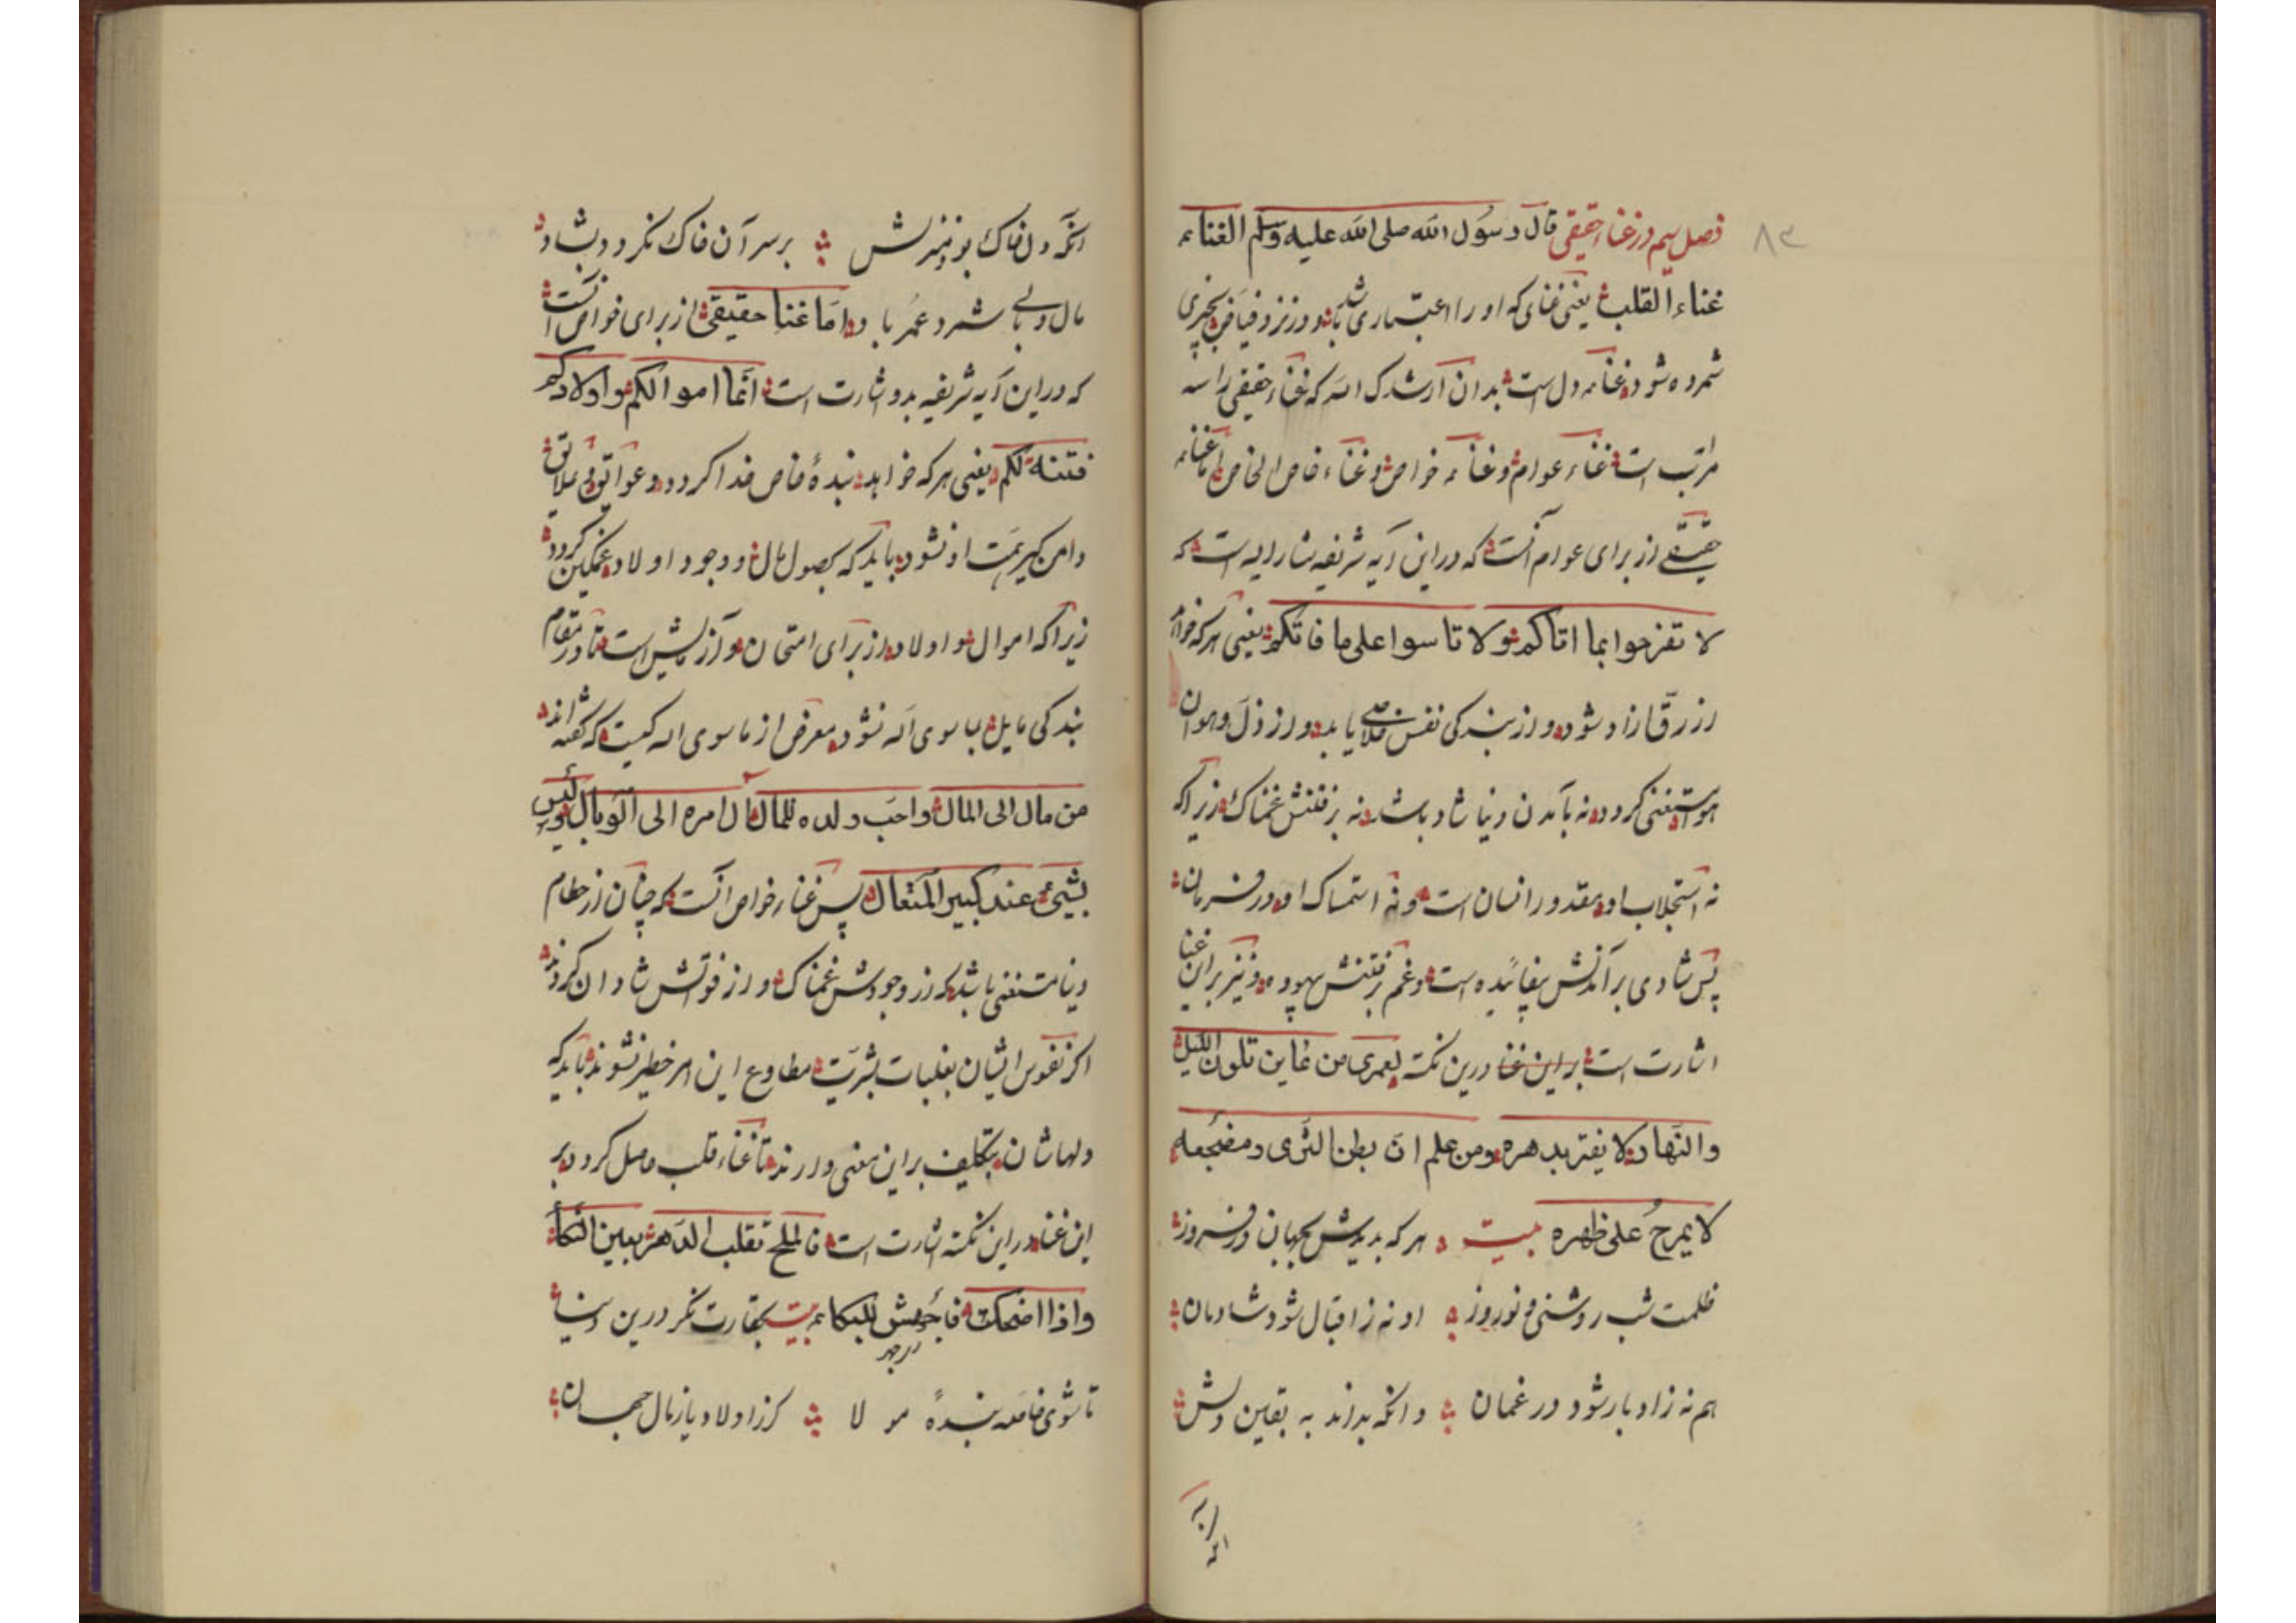 فصل سیم در غناء حقیقی قال رسول الله صلی الله علیه وسلم الغناء
غناء القلب یعنی غنای که او را اعتباری باشد و در نزد فیاض بچیزی
شمرده شود غناء دل است بدان ارشدک الله که غناء حقیقی را سه
مراتب است غناء عوام و غناء خواص و غناء خاص الخاص اما غناء
حقیقی از برای عوام آنست که در این آیه شریفه مشار الیه است که
لا تفرحوا بما اتاکم ولا تاسوا علی ما فاتکم یعنی هر که خواهد
از رق آزاد شود و از بندکی نفس خلاصی یابد و از ذل و هوان
هوا مستغنی کردد نه بآمدن دنیا شاد باشد نه برفتنش غمناک زیراکه
نه استجلاب او مقدور انسان است و نه استمساک او در فرمان
پس شادی بر آمدنش بیفائیده است و غم رفتنش بیهوده و نیز بر این غنا
اشارت است بر این غنا درین نکته لعمری من عاین تلون اللیل
والنهار لا یغتر بدهره ومن علم ان بطن الثری ومضجعه
لا یمرح علی ظهره بیت هر که بدیدش بجهان در فروز
ظلمت شب روشنی و نور روز او نه ز اقبال شود شادمان
هم نه ز ادبار شود در غمان وانکه بداند به یقین دلش
۸۳
آنکه دل خاک بود منزلش بر سر آن خاک نکردد بشاد
مال وبالی شمرد عمر باد اما غنا حقیقی از برای خواص آنست
که در این آیه شریفه بدو اشارت است انما اموالکم واولادکم
فتنة لکم یعنی هر که خواهد بندهٔ خاص خدا کردد و عوائق و علایق
دامن کیر همت او نشود باید که بحصول مال و وجود اولاد غمکین کردد
زیراکه اموال و اولاد از برای امتحان و آزمایش است تا در مقام
بندکی مایل بما سوی الله نشود معرض از ما سوی الله کیست که کفته اند
من مال الی المال واحب ولده للمال ال امره الی الوبال ولیس
بشیء عند کبیر المتعال پس غناء خواص آنست که چنان از حطام
دنیا مستغنی باشد که از وجودش غمناک و از فوتش شادان کردند
اکر نفوس ایشان بغلبات بشریت مطاوع این امر خطیر نشوند باید که
دلهاشان بتکلیف بر این معنی دارند تا غناء قلب حاصل کردد بر
این غنا در این نکته اشارت است فالملح تقلب الدهر بعین النکأ
واذا اضحکت فأجهش للبکاء بیت بحقارت نکر درین دنیا
تا شوی خاصه بندهٔ مولا کر ز اولاد یا ز مال جهان